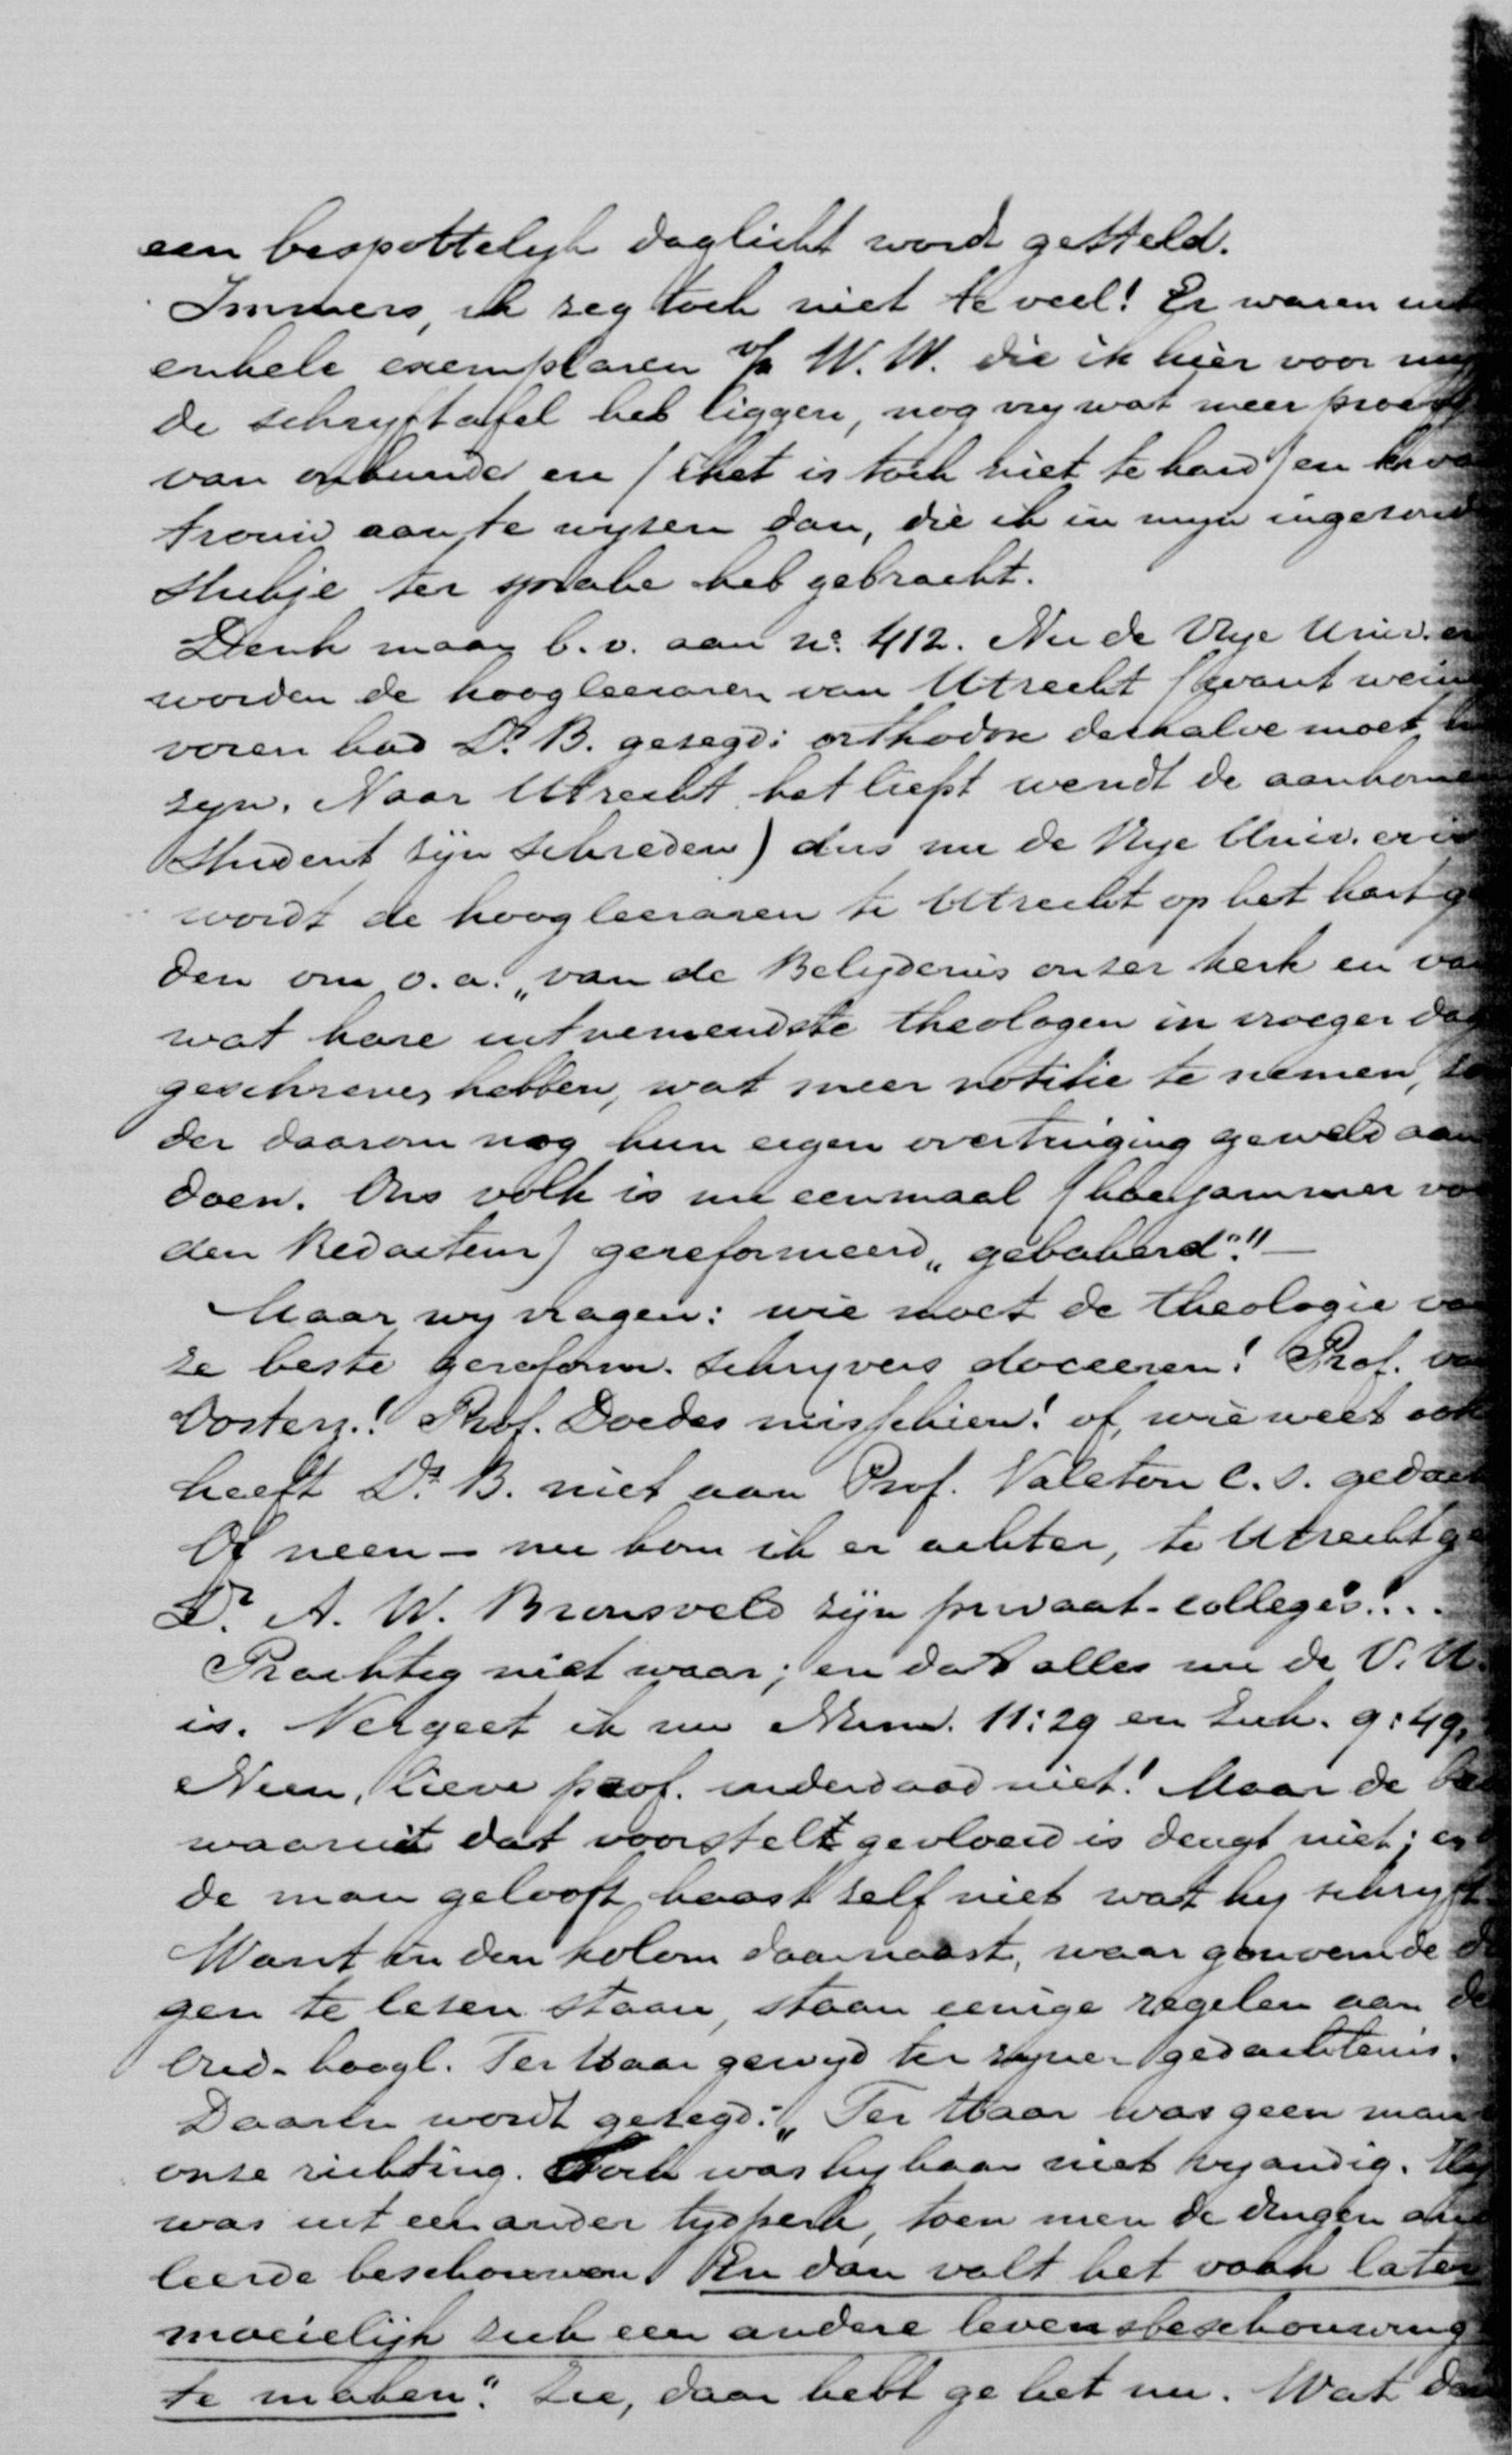 een bespottelijk daglicht wordt gesteld.
Immers, ik zeg toch niet te veel! Er waren uit
enkele exemplaren v/h W.W. die ik hier voor mij
de schryftafel heb liggen, nog vry wat meer proev
van onkunde en (het is toch niet te hard) en kwa
trouw aan te wyzen dan, die ik in myn ingezond
stukje ter sprake heb gebracht.
Denk maar b.v. aan no. 412. Nu de Vrye Univ. er
worden de hoogleeraren van Utrecht (want wein
voren had Dr. B. gezegd: orthodox derhalve moet h
zyn. Naar Utrecht het liefst wendt de aankome
student zyn schreden) dus nu de Vrye Univ. er is
wordt de hoogleeraren te Utrecht op het hart g
den om o.a. „van de Belydenis onzer kerk en va
wat hare uitnemendste theologen in vroeger dag
geschreven hebben, wat meer notitie te nemen, zo
der daarom nog hun eigen overtuiging geweld aan
doen. Ons volk is nu eenmaal (hoe jammer vo
den Redacteur) gereformeerd „gebakerd"." —
Maar wy vragen: wie moet de theologie va
ze beste gereform. schryvers doceeren! Prof. va
Oosterz.! Prof. Doedes misschien! of, wie weet ook
heeft Dr. B. niet aan Prof. Valeton c.s. gedach
Of neen — nu kom ik er achter, te Utrecht ge
Dr. A. W. Bronsveld zyn privaat-colleges!...
Prachtig niet waar; en dat alles nu de V.U.
is. Vergeet ik nu Num. 11:29 en Luk. 9:49,
Neen, lieve prof. inderdaad niet! Maar de b
waaruit dat voorstelt gevloeid is deugt niet; en
de man gelooft haast zelf niet wat hy schryft
Want in den kolom daarnaast, waar genoemde d
gen te lezen staan, staan eenige regelen aan de
Oud-hoogl. Ter Haar gewyd ter zyner gedachtenis.
Daarin wordt gezegd: „Ter Haar was geen man
onze richting. Toch was hy haar niet vyandig. Hy
was uit een ander tydperk, toen men de dingen an
leerde beschouwen. En dan valt het vaak later
moeielijk zich een andere levensbeschouwing
te maken". Zie, daar hebt ge het nu. Wat da